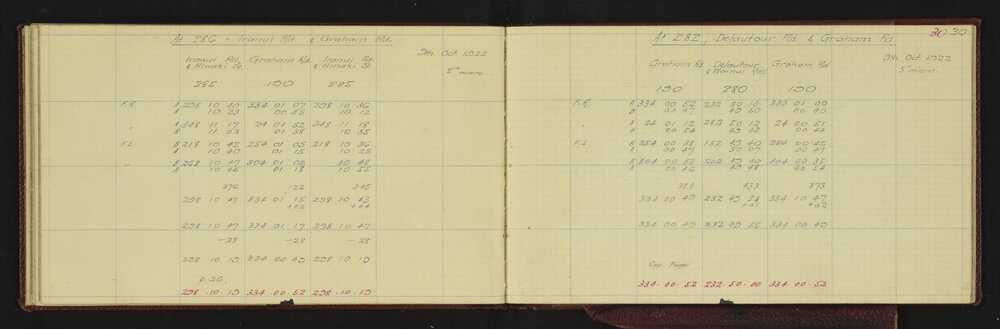 At 286 - Iranui Rd. & Graham Rd.
9th. Oct. 1922.
5" micro.
Iranui Rd. Graham Rd. Iranui Rd.
& Hinaki St. & Hinaki St.
285 190 285
F.R. A 298 10 40 334 01 07 298 10 36
B 10 23 00 56 10 12
" A 348 11 17 24 01 52 348 11 18
B 11 03 01 38 10 55
F.L. B 218 10 42 254 01 05 218 10 36
A 10 40 01 15 10 26
" B 268 10 47 304 01 02 10 48
A 10 46 01 18 10 55
376 122 345
298 10 47 334 01 15 298 10 43
+02 +04
298 10 47 334 01 17 298 10 47
-28 -28 -28
298 10 19 334 00 49 298 10 19
p.26.
298 . 10 . 19 334 . 00 . 52 298 . 10 . 19
30 30
At 282, Delautour Rd. & Graham Rd.
9th. Oct. 1922
5" micro.
Graham Rd. Delautour Graham Rd.
& Wainui Rds.
190 280 190
F.R. A 334 00 52 232 50 13 334 01 00
B 00 47 49 50 00 40
" A 24 01 12 283 50 12 24 00 51
B 00 54 49 43 00 44
F.L. B 254 00 38 152 49 40 254 00 42
A 00 47 50 07 00 47
" B 304 00 32 202 49 40 304 00 35
A 00 46 49 48 00 54
388 433 373
334 00 49 232 49 54 334 10 47
+01 +02
334 00 49 282 49 55 334 00 49
Opp. Page
334 . 00 . 52 232 . 50 . 00 334 . 00 . 52